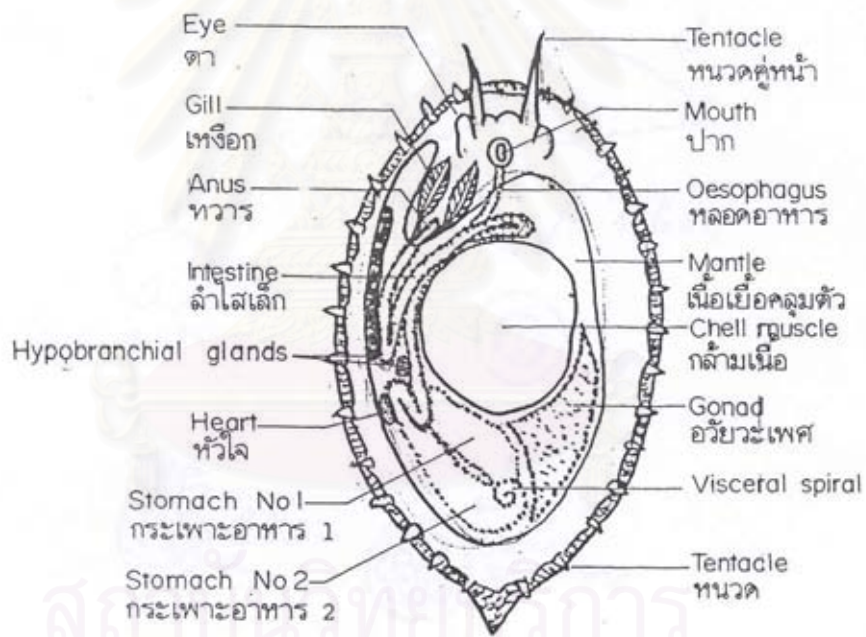 Eye
ตา
Gill
เหงือก
Anus
ทวาร
Intestine
ลำไส้เล็ก
Hypobranchial glands
Heart
หัวใจ
Stomach No1
กระเพาะอาหาร 1
Stomach No2
กระเพาะอาหาร 2
Tentacle
หนวดคู่หน้า
Mouth
ปาก
Oesophagus
หลอดอาหาร
Mantle
เนื้อเยื่อคลุมตัว
Chell muscle
กล้ามเนื้อ
Gonad
อวัยวะเพศ
Visceral spiral
Tentacle
หนวด
สถาบันวิทยบริการ